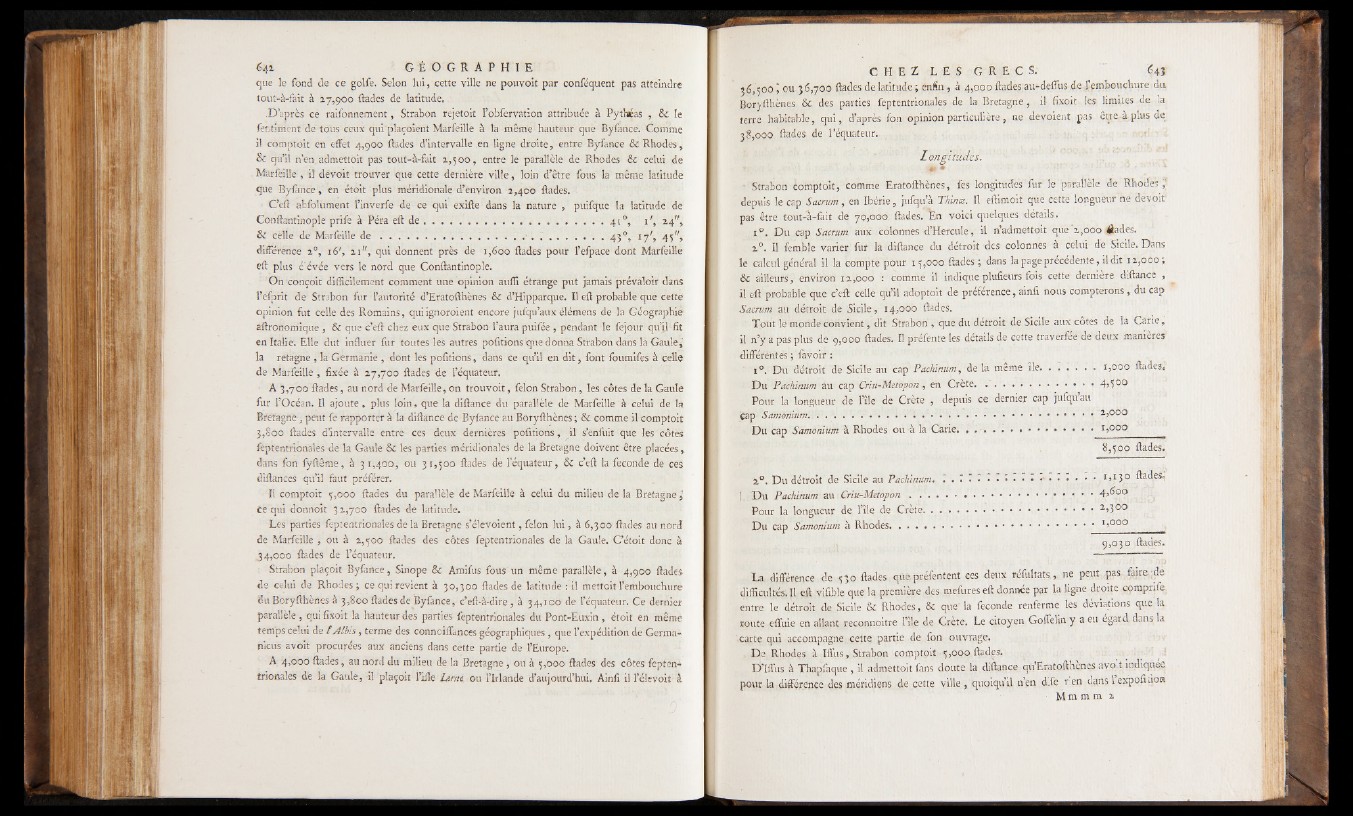 642 GÉOGRAPHIE
que le fond de ce golfe. Selon lui, cette ville ne pouvoit par conſéquent pas atteindre
tout-à-fait à 27,900 ſtades de latitude.
D'après ce raiſonnement, Strabon rejetoit l'obſervation attribuée à Pythéas , & le
ſentiment de tous ceux qui plaçoient Marſeille à la même hauteur que Byſance. Comme
il comptoit en effet 4,900 ſtades d'intervalle en ligne droite, entre Byſance & Rhodes,
& qu'il n'en admettoit pas tout-à-fait 2,500, entre le parallèle de Rhodes & celui de
Marſeille , il devoit trouver que cette dernière ville, loin d'être ſous la même latitude
que Byſance, en étoit plus méridionale d'environ 2,400 ſtades.
C'eſt abſolument l'inverſe de ce qui exiſte dans la nature , puiſque la latitude de
Conſtantinople priſe à Péra eſt de . . . . . . . . . . . . . . . . . . . 41°, 1', 24",
& celle de Marſeille de . . . . . . . . . . . . . . . . . . . . . . . . 43°, 17', 45",
différence 2°, 16', 21", qui donnent près de 1,600 ſtades pour l'eſpace dont Marſeille
eſt plus é evée vers le nord que Conſtantinople.
On conçoit difficilement comment une opinion auſſi étrange put jamais prévaloir dans
l'eſprit de Strabon ſur l'autorité d'Eratoſthènes & d'Hipparque. Il eſt probable que cette
opinion fut celle des Romains, qui ignoroient encore juſqu'aux élémens de la Géographie
aſtronomique , & que c'eſt chez eux que Strabon l'aura puiſée , pendant le ſejour qu'il fit
en Italie. Elle dut influer ſur toutes les autres poſitions que donna Strabon dans la Gaule,
la retagne , la Germanie , dont les poſitions, dans ce qu'il en dit, ſont ſoumiſes à celle
de Marſeille , fixée à 27,700 ſtades de l'équateur.
A 3,700 ſtades, au nord de Marſeille, on trouvoit, ſelon Strabon, les côtes de la Gaule
ſur l'Océan. Il ajoute , plus loin, que la diſtance du parallèle de Marſeille à celui de la
Bretagne , peut ſe rapporter à la diſtance de Byſance au Boryſthènes ; & comme il comptoit
3,800 ſtades d'intervalle entre ces deux dernières poſitions, il s'enſuit que les côtes
ſeptentrionales de la Gaule & les parties méridionales de la Bretagne doivent être placées,
dans ſon ſyſtême, à 31,400, ou 31,500 ſtades de l'équateur, & c'eſt la ſeconde de ces
diſtances qu'il faut préférer.
Il comptoit 5,000 ſtades du parallèle de Marſeille à celui du milieu de la Bretagne,
ce qui donnoit 32,700 ſtades de latitude.
Les parties ſeptentrionales de la Bretagne s'élevoient, ſelon lui, à 6,300 ſtades au nord
de Marſeille , ou à 2,500 ſtades des côtes ſeptentrionales de la Gaule. C'étoit donc à
34,000 ſtades de l'équateur.
Strabon plaçoit Byſance, Sinope & Amiſus ſous un même parallèle, à 4,900 ſtades
de celui de Rhodes ; ce qui revient à 30,300 ſtades de latitude : il mettoit l'embouchure
du Boryſthènes à 3,800 ſtades de Byſance, c'eſt-à-dire, à 34,100 de l'équateur. Ce dernier
parallèle , qui fixoit la hauteur des parties ſeptentrionales du Pont-Euxin , étoit en même
temps celui de l'Albis, terme des connoiſſances géographiques , que l'expédition de Germa-
nicus avoit procurées aux anciens dans cette partie de l'Europe.
A 4,000 ſtades, au nord du milieu de la Bretagne , ou à 5,000 ſtades des côtes ſepten-
trionales de la Gaule, il plaçoit l'iſle Ierne ou l'Irlande d'aujourd'hui. Ainſi il l'élevoit à
CHEZ LES GRECS. 643
36,500 ; ou 36,700 ſtades de latitude ; enfin , à 4,000 ſtades au-deſſus de l'embouchure du
Boryſthènes & des parties ſeptentrionales de la Bretagne , il fixoit les limites de la
terre habitable, qui, d'après ſon opinion particulière, ne devoient pas être à plus de
38,000 ſtades de l'équateur.
Longitudes.
Strabon comptoit, comme Eratoſthènes, ſes longitudes ſur le parallèle de Rhodes,
depuis le cap Sacrum, en Ibérie, juſqu'à Thinæ. Il eſtimoit que cette longueur ne devoit
pas être tout-à-fait de 70,000 ſtades. En voici quelques détails.
1°. Du cap Sacrum aux colonnes d'Hercule, il n'admettoit que 2,000 ſtades.
2°. Il ſemble varier ſur la diſtance du détroit des colonnes à celui de Sicile. Dans
le calcul général il la compte pour 15,000 ſtades ; dans la page précédente, il dit 12,000 ;
& ailleurs, environ 12,000 : comme il indique pluſieurs fois cette dernière diſtance ,
il eſt probable que c'eſt celle qu'il adoptoit de préférence, ainſi nous compterons, du cap
Sacrum au détroit de Sicile, 14,000 ſtades.
Tout le monde convient, dit Strabon , que du détroit de Sicile aux côtes de la Carie,
il n'y a pas plus de 9,000 ſtades. Il préſente les détails de cette traverſée de deux manières
différentes ; ſavoir :
1°. Du détroit de Sicile au cap Pachinum, de la même île. . . . . . . 1,000 ſtades.
Du Pachinum au cap Criu-Metopon, en Crète. . . . . . . . . . . . . 4,500
Pour la longueur de l'île de Crète , depuis ce dernier cap juſqu'au
cap Samonium. . . . . . . . . . . . . . . . . . . . . . . . . . . . . 2,000
Du cap Samonium à Rhodes ou à la Carie. . . . . . . . . . . . . . . 1,000
8,500 ſtades.
2°. Du détroit de Sicile au Pachinum. . . . . . . . . . . . . . . . . 1,130 ſtades.
Du Pachinum au Criu-Metopon . . . . . . . . . . . . . . . . . . . . 4,600
Pour la longueur de l'île de Crète. . . . . . . . . . . . . . . . . . 2,300
Du cap Samonium à Rhodes. . . . . . . . . . . . . . . . . . . . . . 1,000
9,030 ſtades.
La différence de 530 ſtades que préſentent ces deux réſultats, ne peut pas faire de
difficultés. Il eſt viſible que la première des meſures eſt donnée par la ligne droite compriſe
entre le détroit de Sicile & Rhodes, & que la ſeconde renferme les déviations que la
route eſſuie en allant reconnoitre l'île de Crète. Le citoyen Goſſelin y a eu égard dans la
carte qui accompagne cette partie de ſon ouvrage.
De Rhodes à Iſſus, Strabon comptoit 5,000 ſtades.
D'Iſſus à Thapſaque , il admettoit ſans doute la diſtance qu'Eratoſthènes avoit indiquée
pour la différence des méridiens de cette ville , quoiqu'il n'en diſe rien dans l'expoſition
Mmmm 2